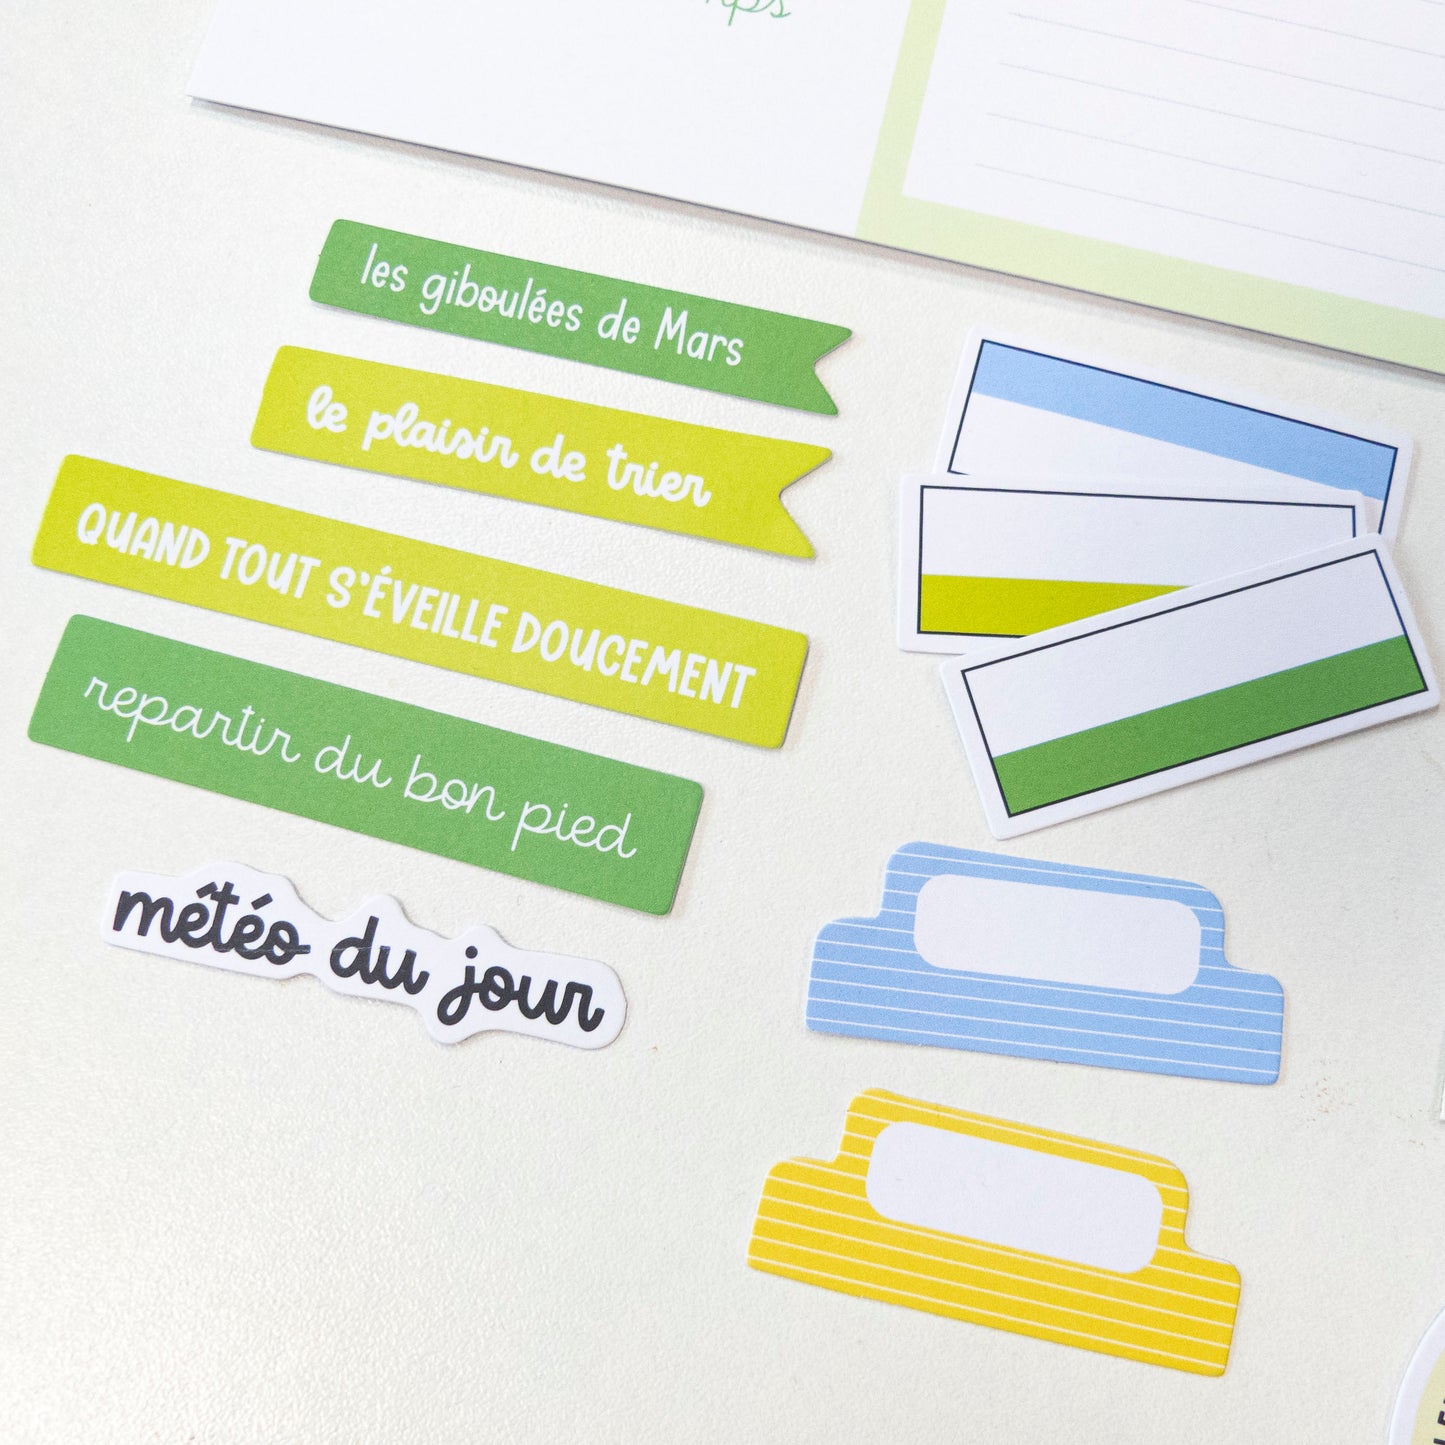 les giboulées de Mars
le plaisir de trier
QUAND TOUT S'ÉVEILLE DOUCEMENT
repartir du bon pied
météo du jour